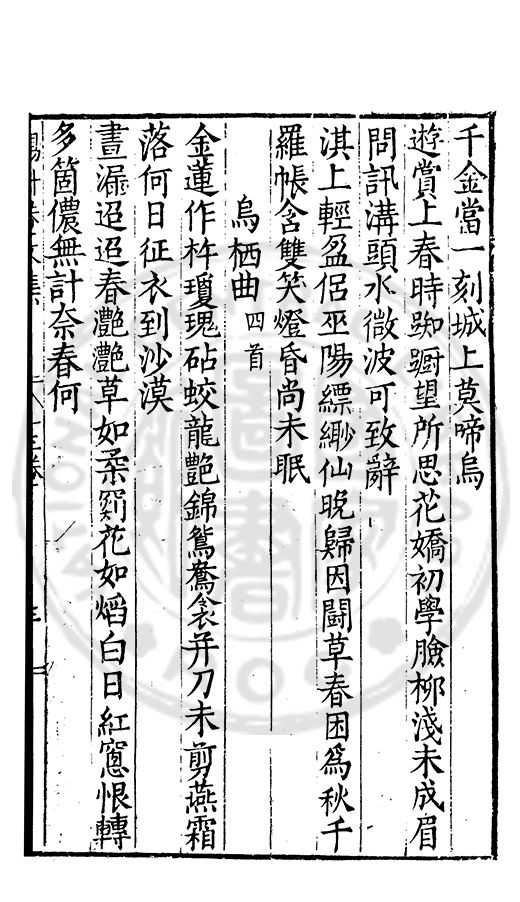 千金當一刻城上莫啼烏
遊賞上春時踟躕望所思花嬌初學臉柳淺未成眉
問訊溝頭水微波可致辭
淇上輕盈侶巫陽縹緲仙晚歸因鬪草春困爲秋千
羅帳含雙笑燈昏尚未眠
烏栖曲四首
金蓮作杵瓊瑰砧蛟龍艷錦鴛鴦衾并刀未剪燕霜
落何日征衣到沙漠
晝漏迢迢春灩灩草如柔剪花如熖白日紅窻恨轉
多箇儂無計奈春何